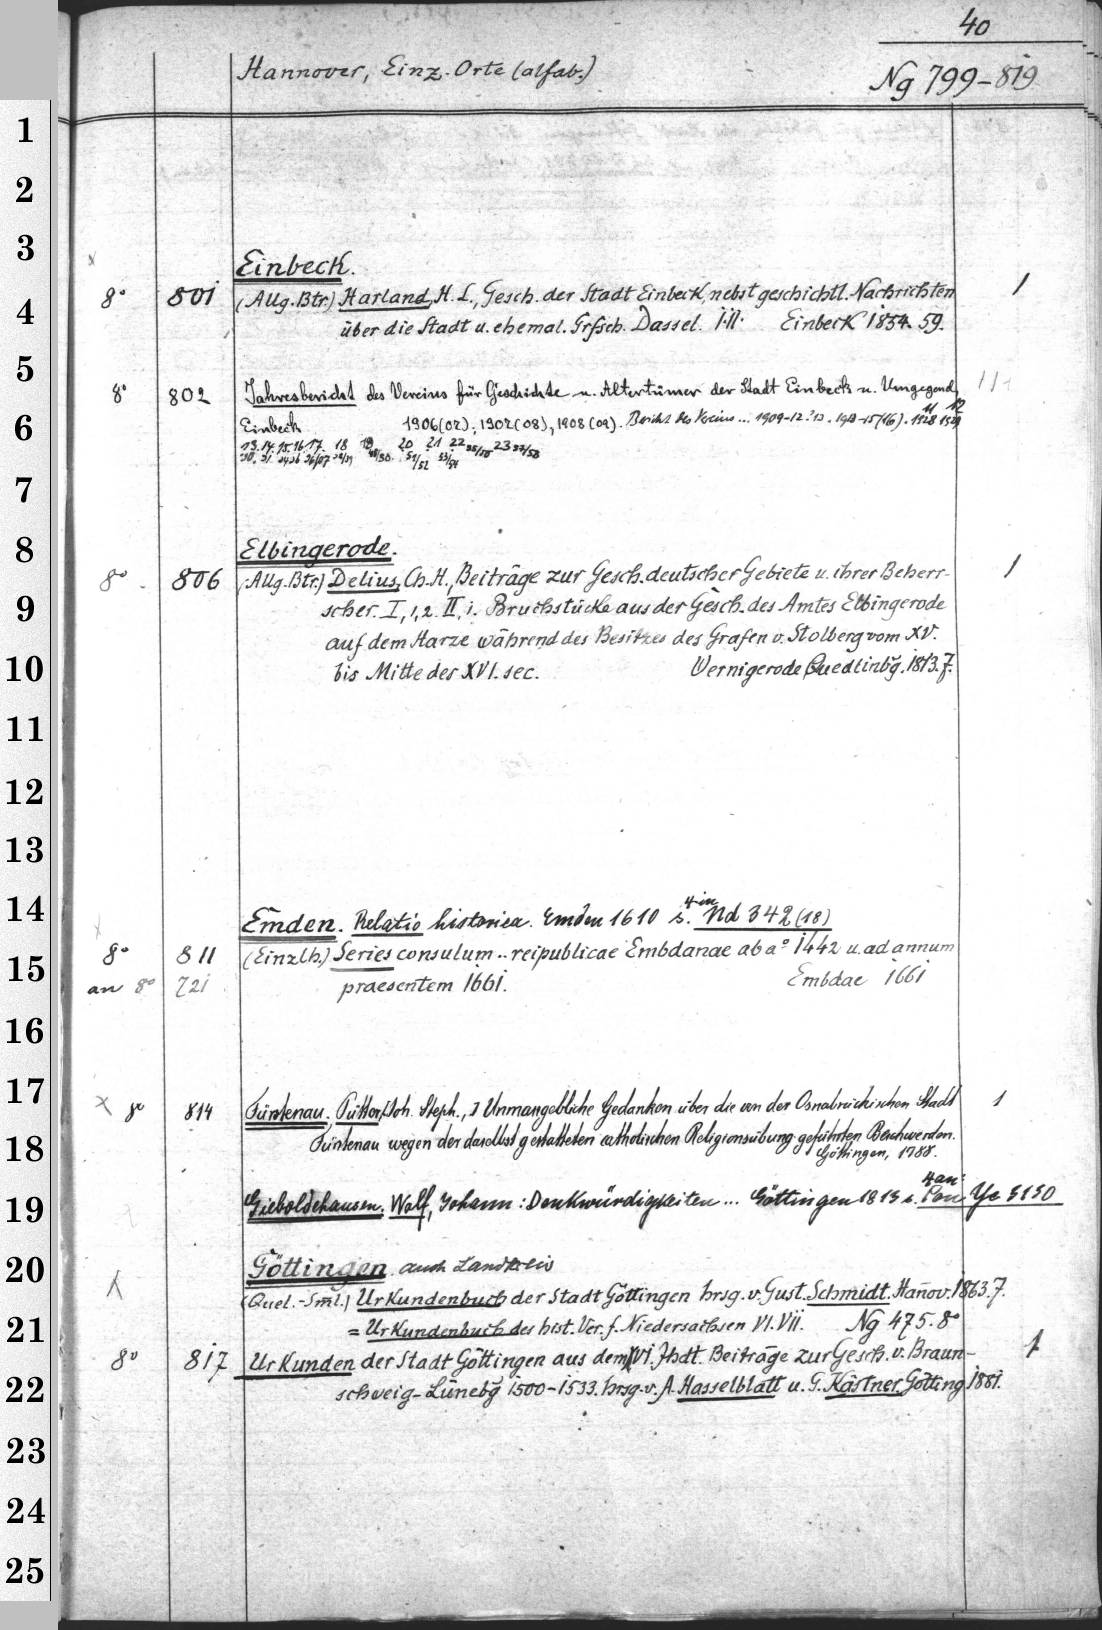 40
Hannover, Einz. Orte (alfab.)
Ng 799-819
Einbeck.
8° 801 (Allg. Btr.) Harland, H. L., Gesch. der Stadt Einbeck, nebst geschichtl. Nachrichten 1
über die Stadt u. ehemal. Grfsch. Dassel. I.II. Einbeck 1854. 59.
8° 802 Jahresbericht des Vereins für Geschichte u. Altertümer der Stadt Einbeck u. Umgegend,
11 12
Einbeck 1906(07), 1907(08), 1908(09). Bericht des Vereins ... 1909-12. 13. 1913-15(16). 1928 1929
13. 14. 15. 16 17. 18 19 20 21 22 23
Elbingerode.
8° 806 (Allg. Btr.) Delius, Ch. H., Beiträge zur Gesch. deutscher Gebiete u. ihrer Beherr- 1
scher. I, 1, 2. II, 1. Bruchstücke aus der Gesch. des Amtes Elbingerode
auf dem Harze während des Besitzes des Grafen v. Stolberg vom XV.
bis Mitte des XVI. sec. Wernigerode Quedlinbg. 1813. 7.
Emden. Relatio historica. Emden 1610 s. 4 in Nd 342 (18)
8° 811 (Einzlh.) Series consulum .. reipublicae Embdanae ab a° 1442 u. ad annum
an 8° 721 praesentem 1661. Embdae 1661
8° 814 Fürstenau. Pütter, Joh. Steph., Unmangebliche Gedanken über die von der Osnabrückischen Stadt 1
Fürstenau wegen der daselbst gestatteten catholischen Religionsübung geführten Beschwerden.
Göttingen, 1788.
Gieboldehausen. Wolf, Johann: Denkwürdigkeiten ... Göttingen 1813 s. 4 an: Ye 5130
Göttingen auch Landkreis
(Quel.-Sml.) Urkundenbuch der Stadt Göttingen hrsg. v. Gust. Schmidt. Hanov. 1863. 7.
= Urkundenbuch des hist. Ver. f. Niedersachsen VI. VII. Ng 475. 8°
8° 817 Urkunden der Stadt Göttingen aus dem XVI. Jhdt. Beiträge zur Gesch. v. Braun- 1
schweig-Lünebg 1500-1533. hrsg. v. A. Hasselblatt u. G. Kästner. Götting 1881.
1
2
3
4
5
6
7
8
9
10
11
12
13
14
15
16
17
18
19
20
21
22
23
24
25